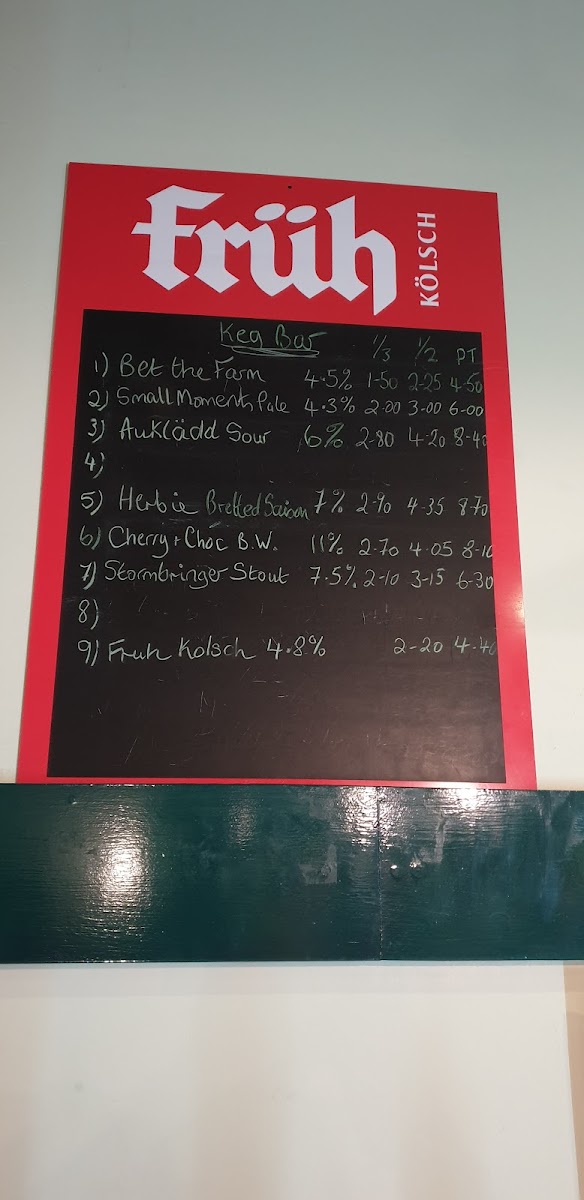 Früh
KÖLSCH
Keg Bar 1/3 1/2 PT
1) Bet the Farm 4.5% 1-50 2-25 4-50
2) Small Moments Pale 4.3% 2-00 3-00 6-00
3) Auklädd Sour 6% 2-80 4-20 8-40
4)
5) Herbie Bretted Saison 7% 2-90 4-35 8-70
6) Cherry + Choc B.W. 11% 2-70 4-05 8-10
7) Stormbringer Stout 7.5% 2-10 3-15 6-30
8)
9) Fruh Kolsch 4.8% 2-20 4-40